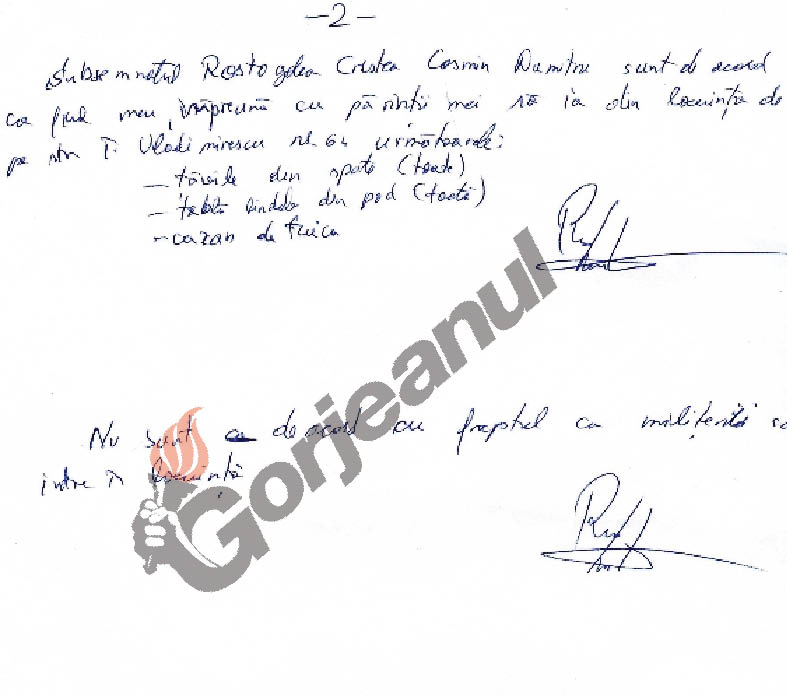 -2-
Subsemnatul Rostogolea Cristea Cosmin Dumitru sunt de acord
ca fiul meu, împreună cu părinții mei să ia din locuința de
pe str T. Vladimirescu nr. 64 următoarele:
- din spate (toate)
- din pod (toată)
- cazan de țuica
Nu sunt de acord cu faptul ca
intre în locuință
Gorjeanul